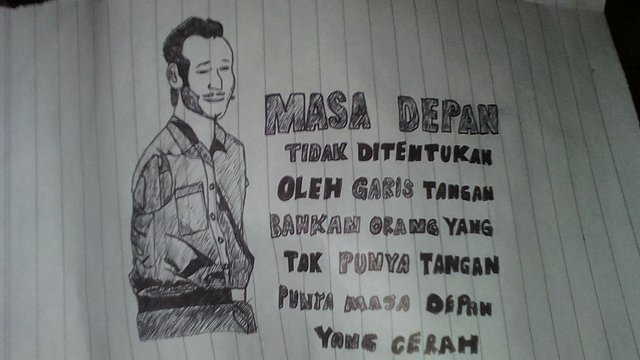 MASA DEPAN
TIDAK DITENTUKAN
OLEH GARIS TANGAN
BAHKAN ORANG YANG
TAK PUNYA TANGAN
PUNYA MASA DEPAN
YANG CERAH